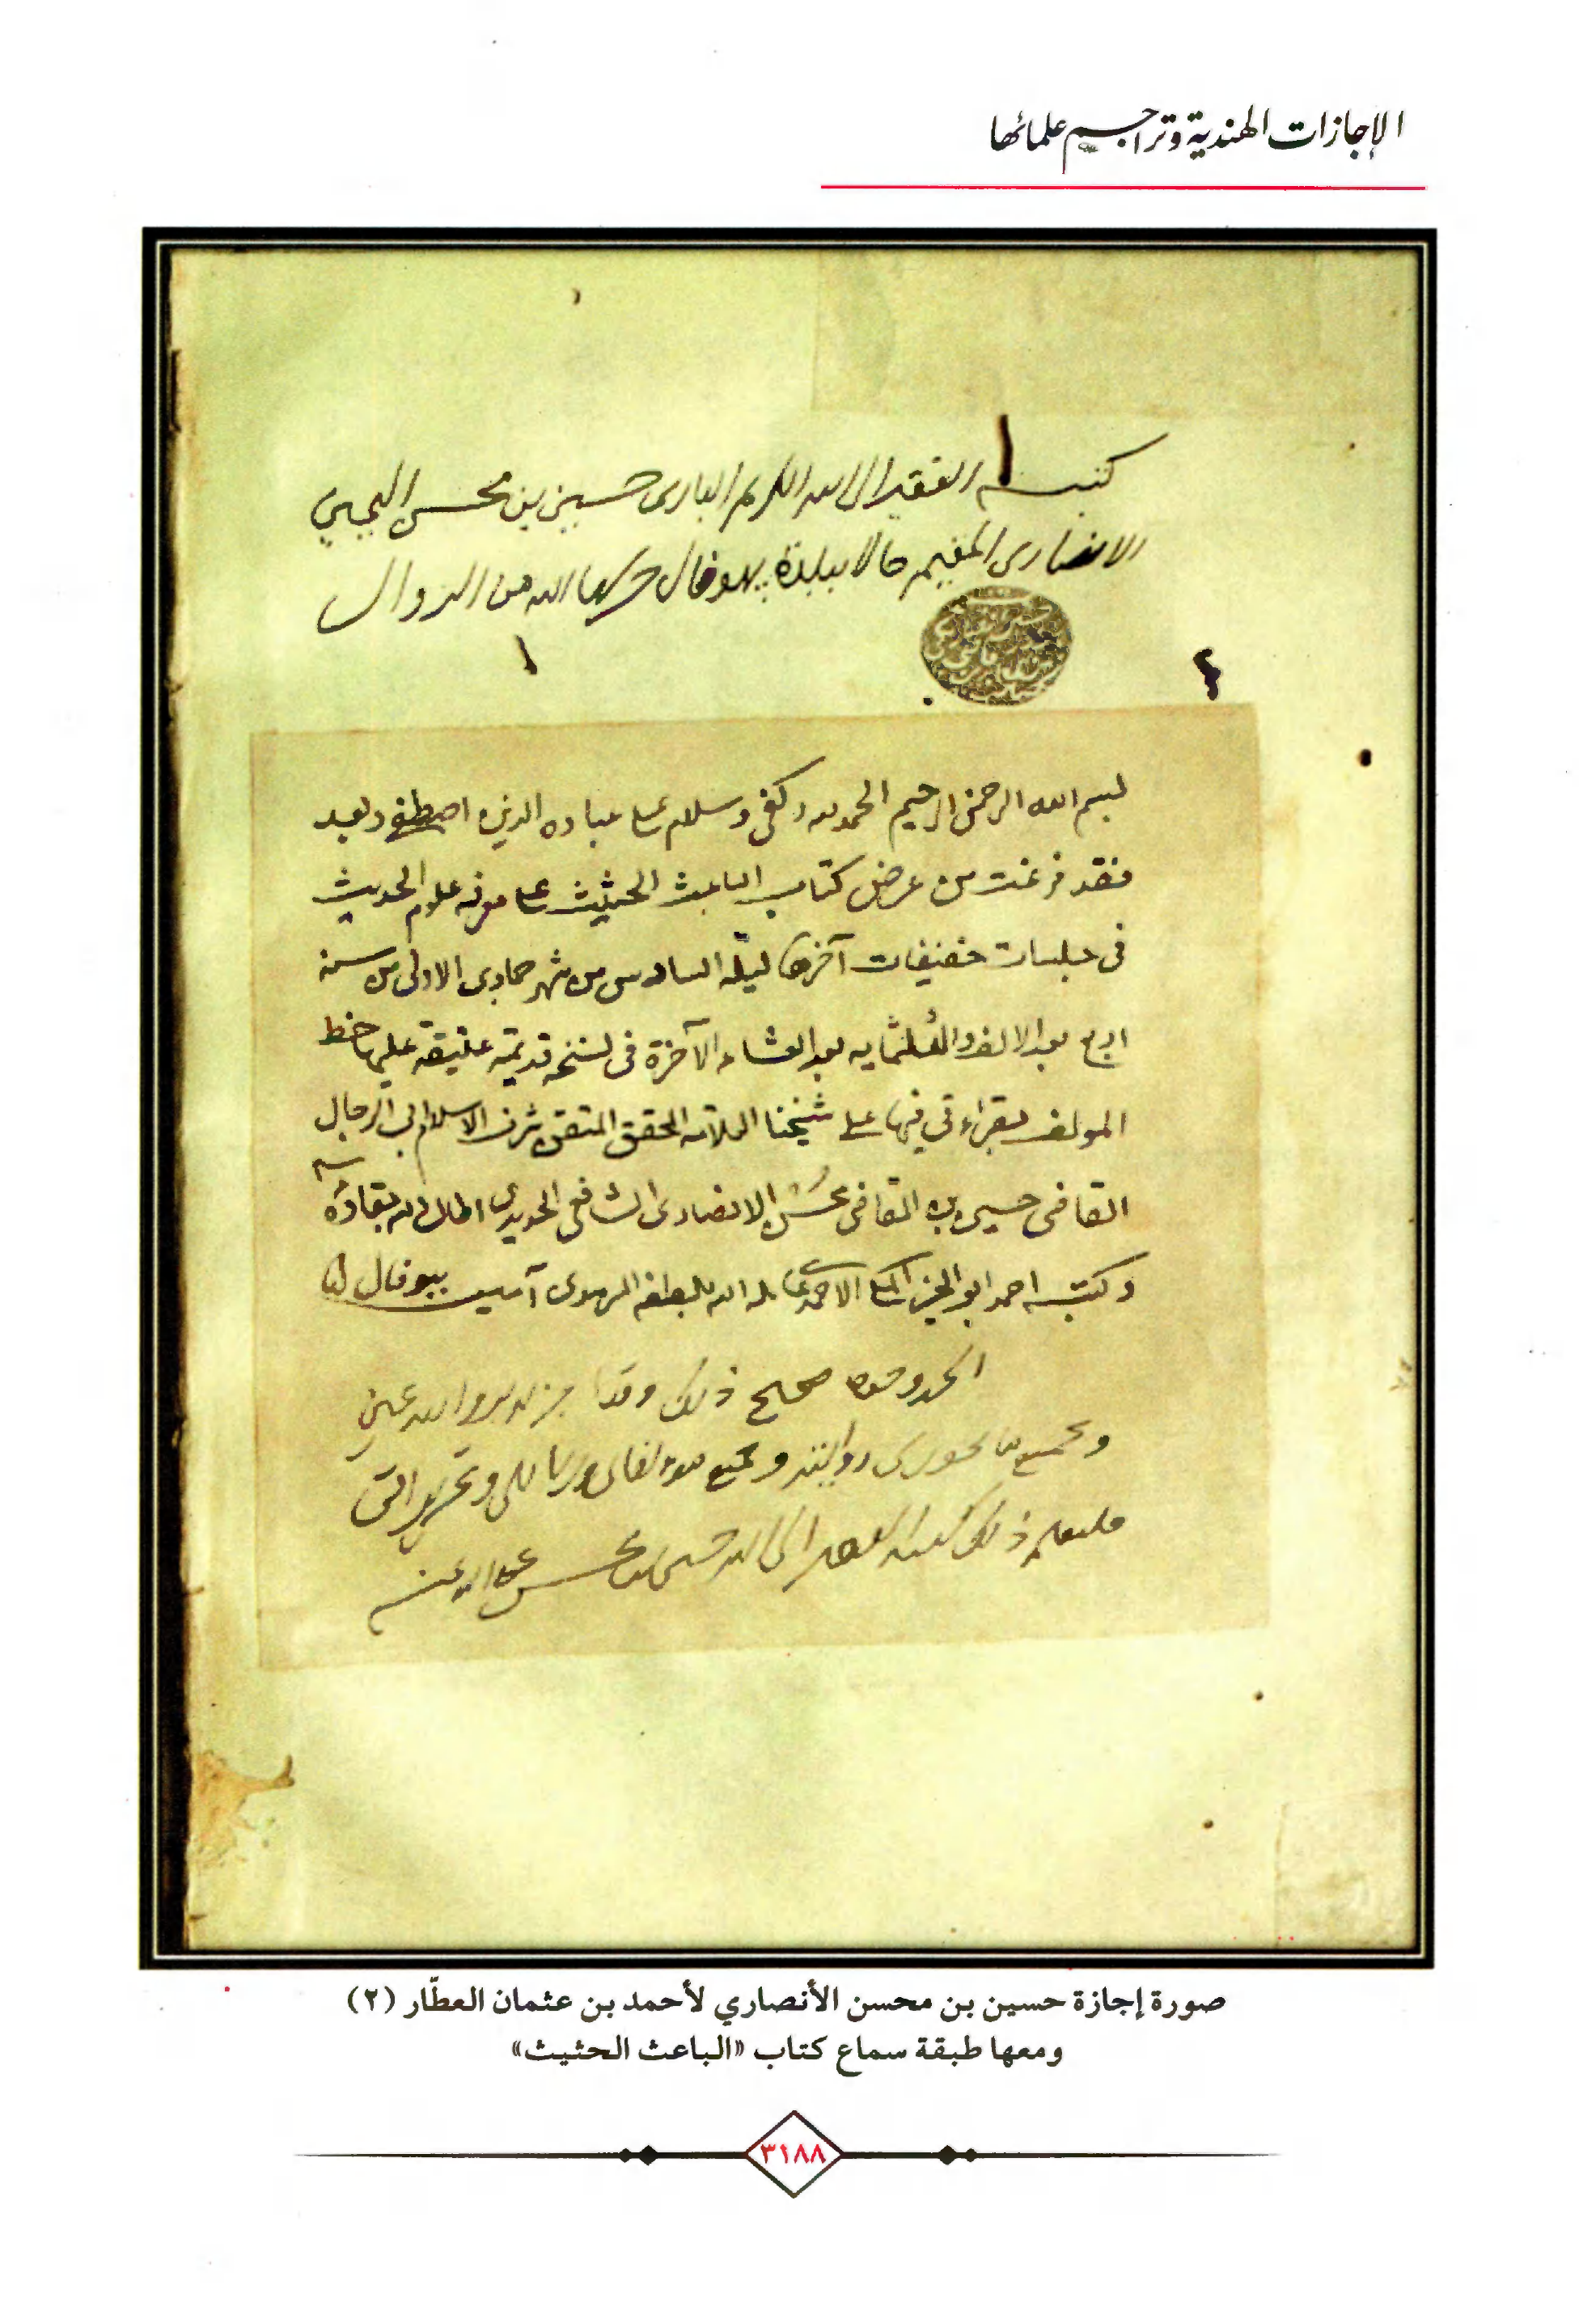 الإجازات الهندية وتراجم علمائها
كتبه الفقير الى الله الكريم البارى حسين بن محسن
الانصارى المقيم حالا ببلدة بهوفال حرسها الله من الزوال
١
٢
بسم الله الرحمن الرحيم الحمد لله وكفى وسلام على عباده الذين اصطفى وبعد
فقد فرغت من عرض كتاب الباعث الحثيث على معرفة علوم الحديث
فى جلسات خفيفات آخرها ليلة السادس من شهر جمادى الاولى من سنة
اربع بعد الالف والثلثمايه بعد العشاء الآخرة فى نسخه قديمة عتيقة عليها خط
المولف بقراءتي فيها على شيخنا العلامه المحقق المتقن شرف الاسلام ابي الرجال
القاضى حسين بن القاضى محسن الانصارى الشافعى الحديدى اطال الله بقاءه
وكتبه احمد ابو الخير المكي الاحمدي عامله الله بلطفه آمين ببوفال
الحمد صحيح ذلك وقد
وبجميع ما يجوز لى روايته وبجميع مؤلفاتى ورسائلى وتحريراتى
ذلك كتبه الفقير الى الله حسين بن محسن عفا الله عنه
صورة إجازة حسين بن محسن الأنصاري لأحمد بن عثمان العطّار (٢)
ومعها طبقة سماع كتاب «الباعث الحثيث»
٣١٨٨